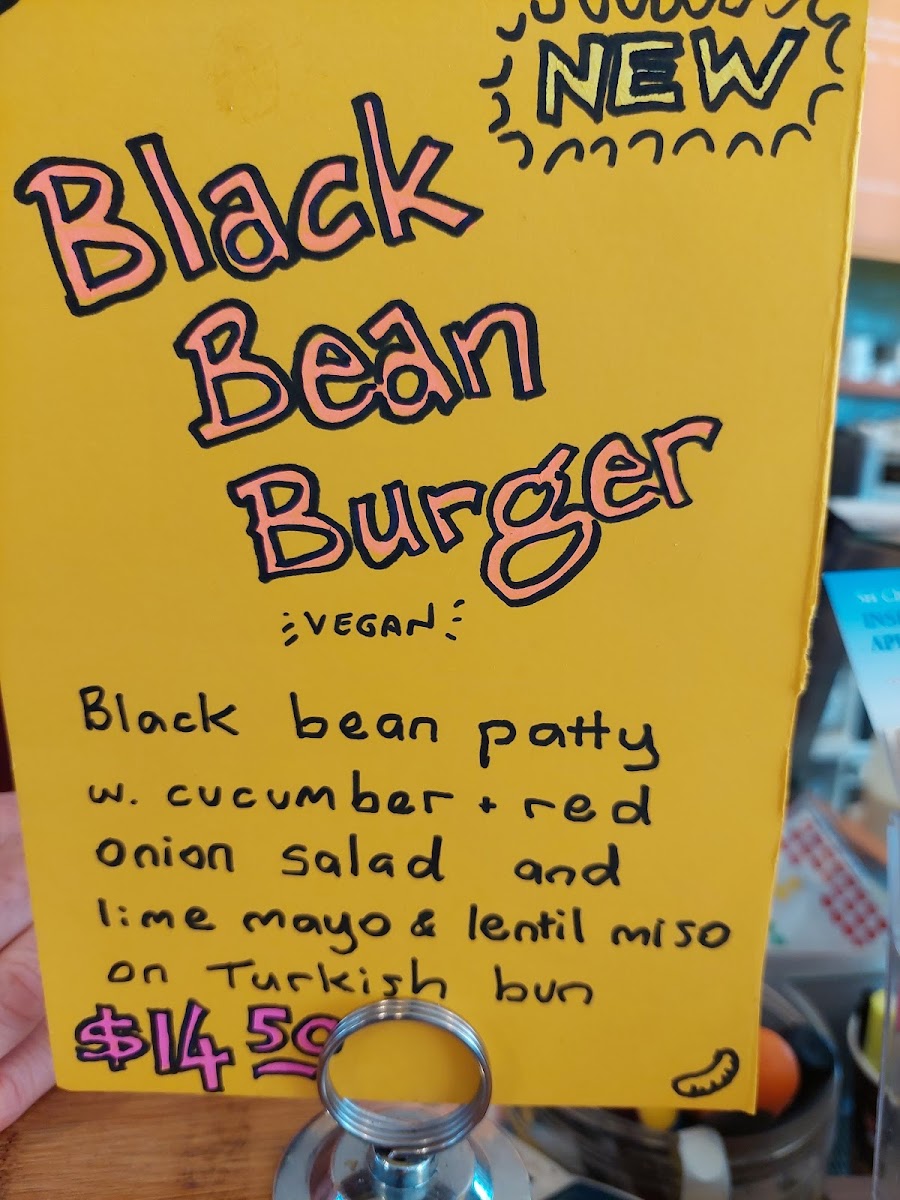 NEW
Black
Bean
Burger
VEGAN
Black bean patty
w. cucumber + red
onion salad and
lime mayo & lentil miso
on Turkish bun
$14 50